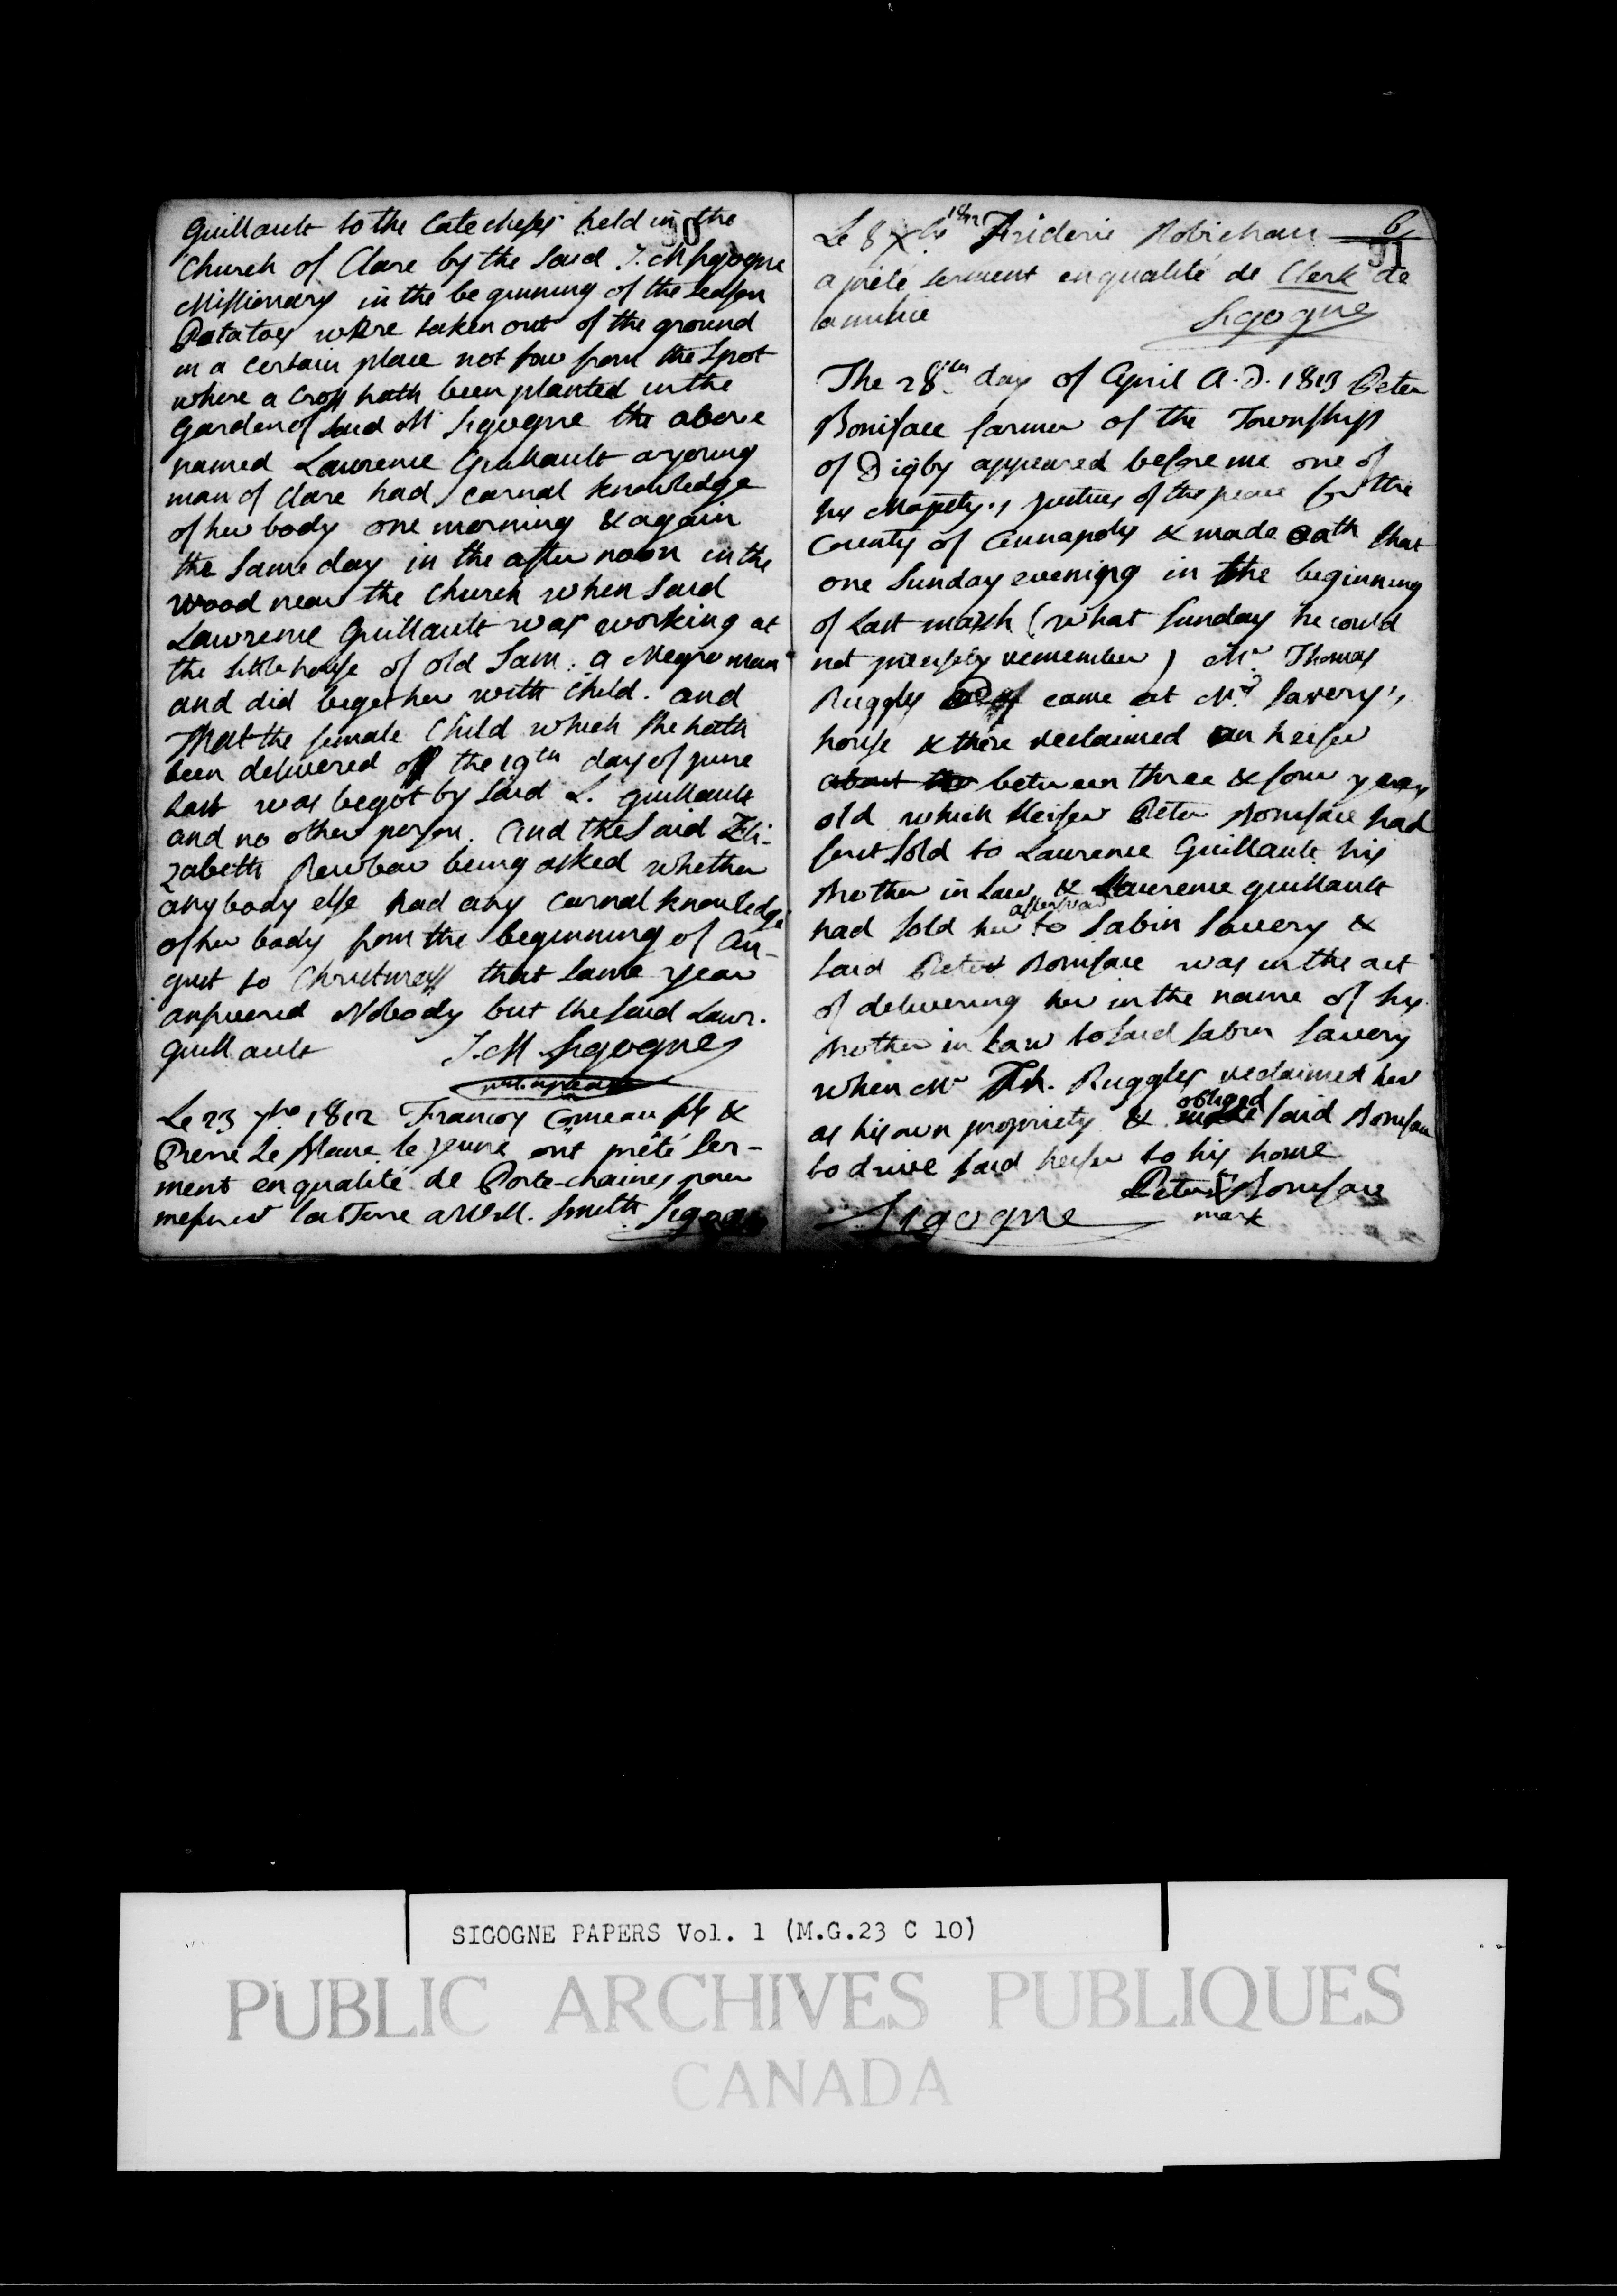 90
Guillault to the Catechesis held in the
Church of Clare by the said J. M Sigogne
Missionary in the beginning of the season
Patatoes where taken out of the ground
in a certain place not far from the spot
where a Cross hath been planted in the
Garden of said Mr Sigogne the above
named Laurence Guillault a young
man of Clare had carnal knowledge
of her body one morning & again
the same day in the after noon in the
wood near the Church when said
Lawrence Guillault was working at
the little house of old Sam. a Negro man
and did beget her with child. and
That the female Child which she hath
been delivered off the 19th day of june
last was begot by said L. guillault
and no other person. And the said Eli-
zabeth being asked whether
any body else had any carnal knowledge
of her body from the beginning of Au-
gust to Christmass that same year
answered Nobody but the said Laur.
Guillault J. M Sigogne
Le 23 7bre 1812 François Comeau fils &
Pierre Le Blanc le jeune ont prêté ser-
ment en qualité de Porte-chaines pour
mesurer la Terre a Will. Smith Sigogne
6
91
Le 8 Xbre 1812 Frideric Robichau
a prêté serment en qualité de Clerk de
la milice Sigogne
The 28th day of April A. D. 1813 Peter
Boniface farmer of the Township
of Digby appeared before me one of
his Majesty's justices of the peace for the
County of Annapolis & made oath that
one Sunday evening in the beginning
of Last march (what Sunday he could
not precisely remember) Mr Thomas
Ruggles came at Mr Savery's
house & there reclaimed an heifer
about two between three & four years
old which Heifer Peter Boniface had
first sold to Laurence Guillault his
Brother in Law & Laurence guillault
had sold her afterward to Sabin Savery &
said Peter Boniface was in the act
of delivering her in the name of his
Brother in Law to said Sabin Savery
when Mr Th. Ruggles reclaimed her
as his own propriety & obliged said Boniface
to drive said heifer to his home
Peter Boniface
mark
Sigogne
SIGOGNE PAPERS Vol. 1 (M.G.23 C 10)
PUBLIC ARCHIVES PUBLIQUES
CANADA